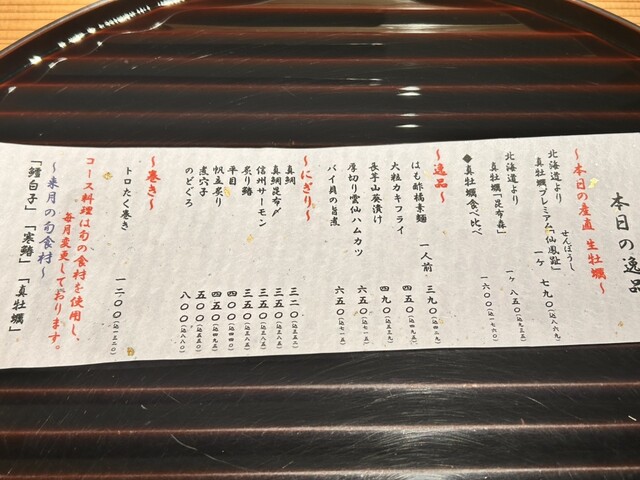 本日の逸品
～本日の産直 生牡蠣～
せんぽうし
北海道より
真牡蠣プレミアム「仙鳳趾」 一ケ 七九〇(込八六九)
北海道より
真牡蠣「昆布森」 一ケ 八五〇(込九三五)
◆真牡蠣食べ比べ 一六〇〇(込一七六〇)
～逸品～
はも酢橘素麺 一人前 三九〇(込四二九)
大粒カキフライ 四五〇(込四九五)
長芋山葵漬け 四九〇(込五三九)
厚切り雲仙ハムカツ 六五〇(込七一五)
バイ貝の旨煮 六五〇(込七一五)
～にぎり～
真鯛 三二〇(込三五二)
真鯛昆布〆 三五〇(込三八五)
信州サーモン 三五〇(込三八五)
炙り鰆 三五〇(込三八五)
平目 四〇〇(込四四〇)
帆立炙り 四五〇(込四九五)
煮穴子 五〇〇(込五五〇)
のどぐろ 八〇〇(込八八〇)
～巻き～
トロたく巻き 一二〇〇(込一三二〇)
コース料理は旬の食材を使用し、
毎月変更しております。
～来月の旬食材～
「鱈白子」「寒鰆」「真牡蠣」